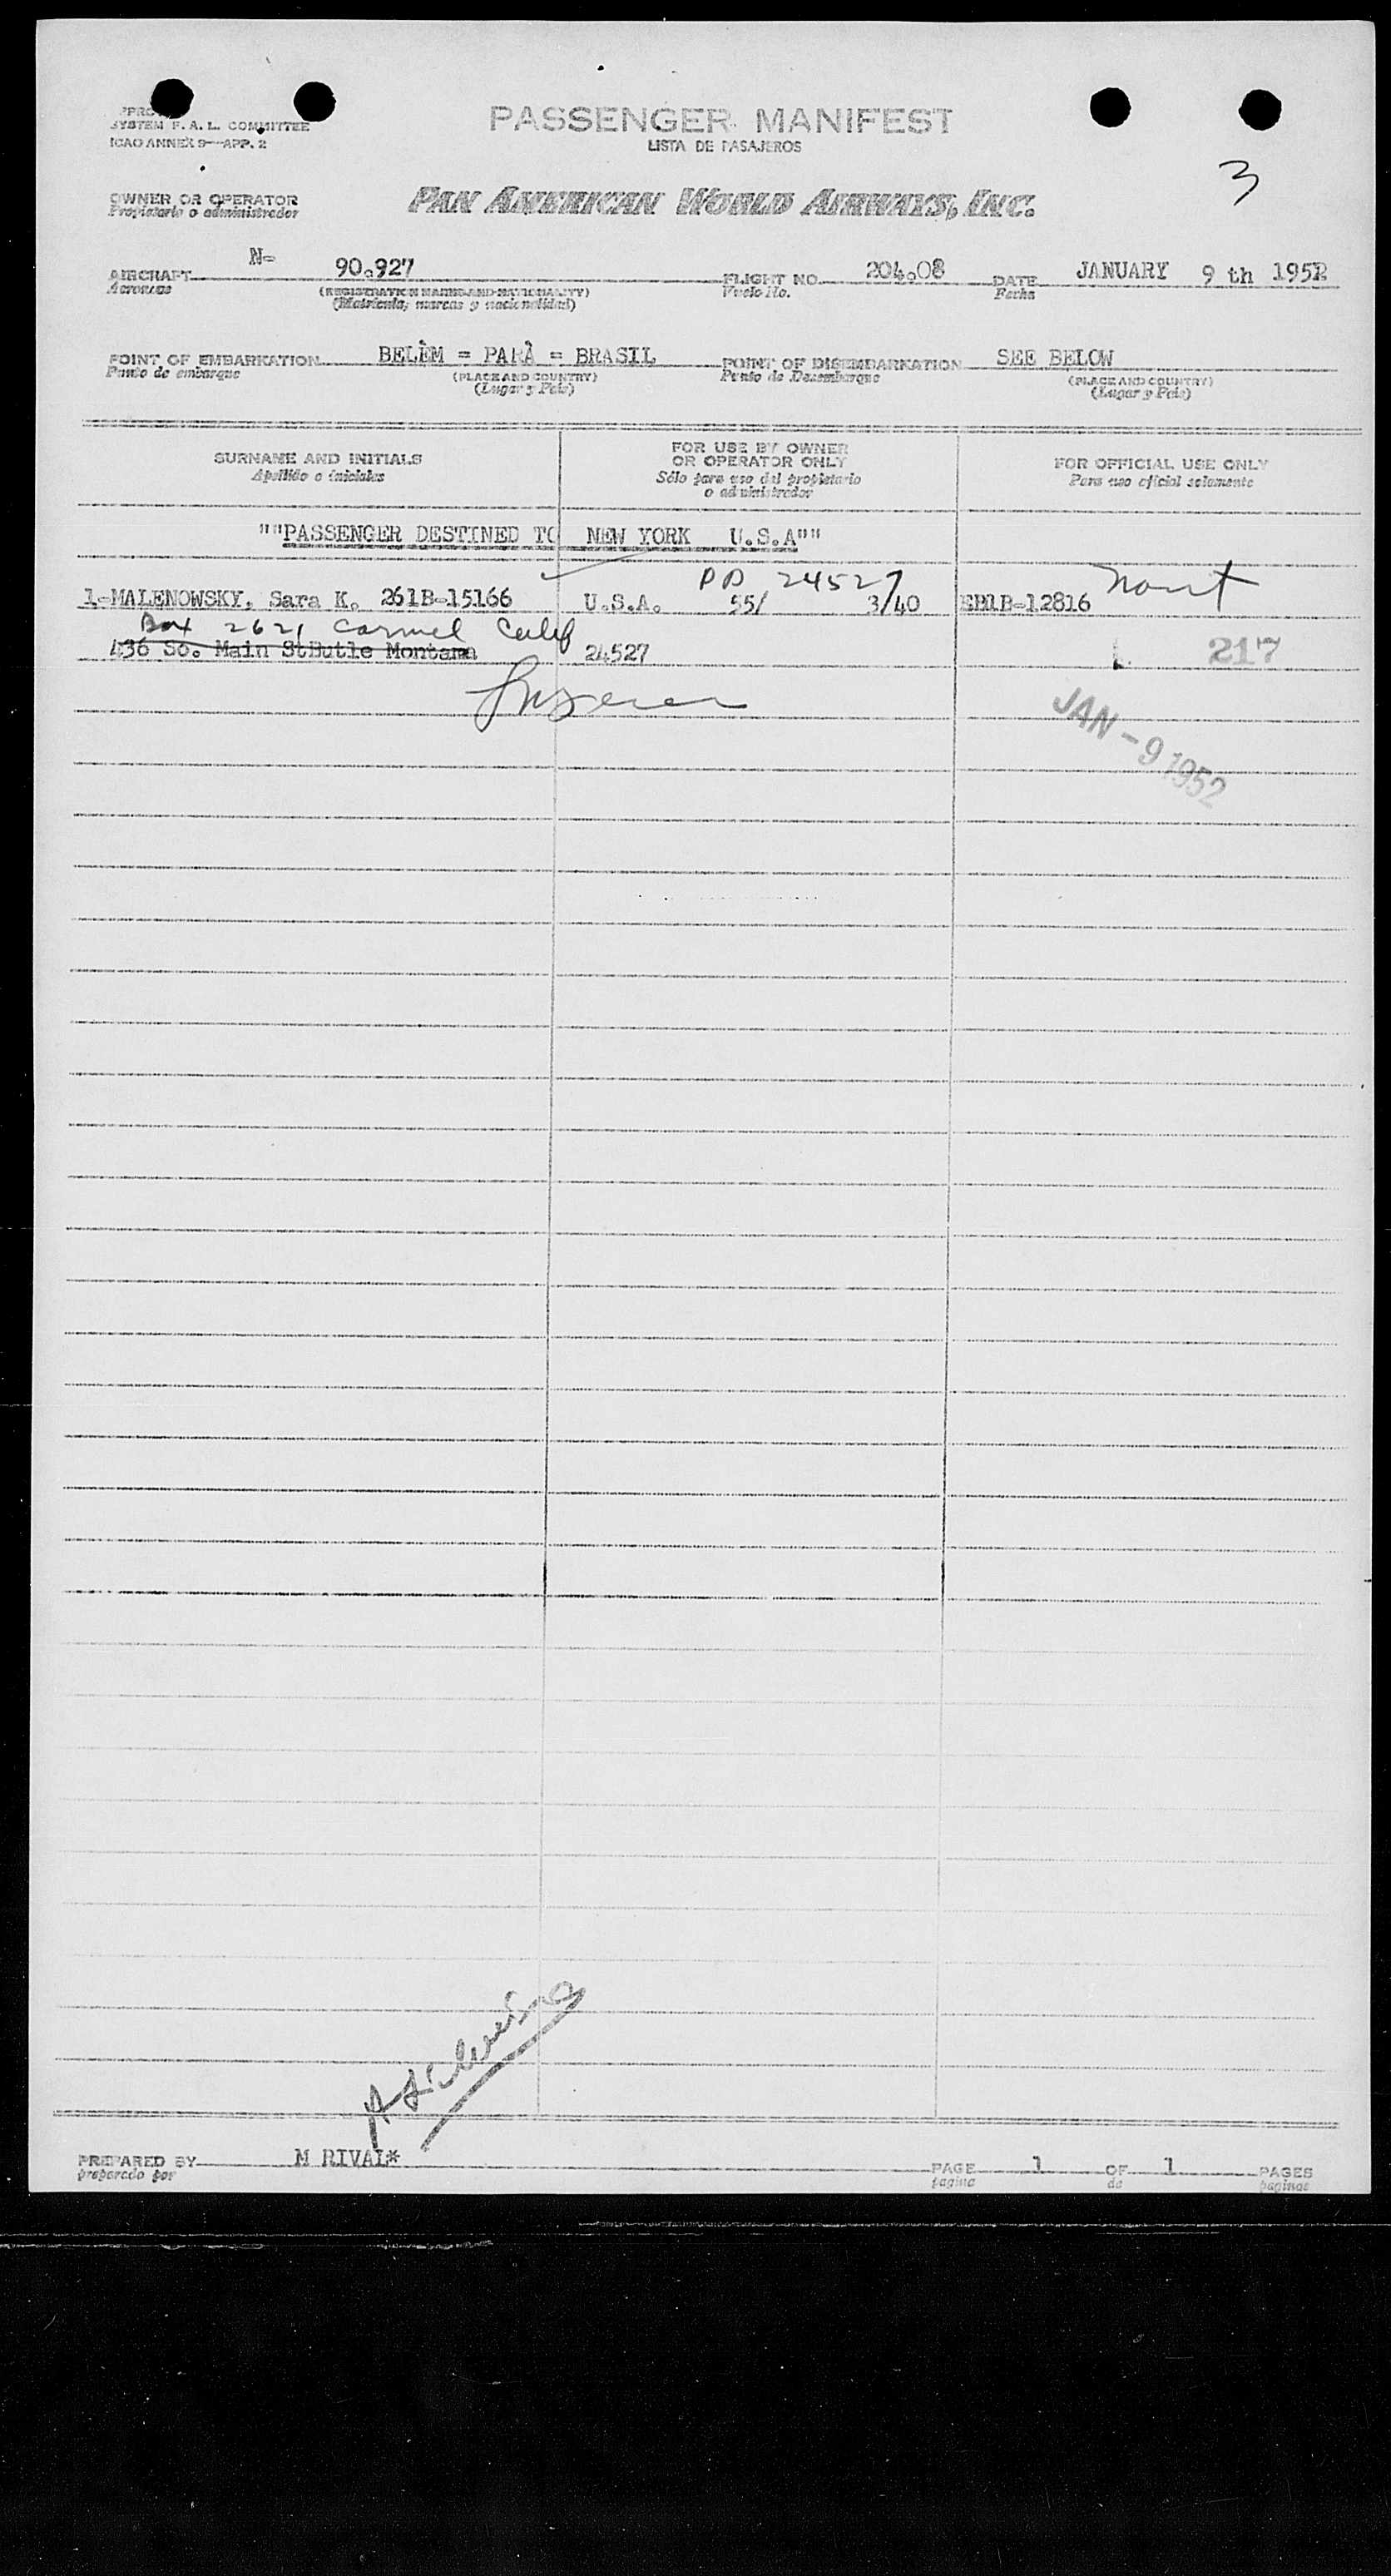 SYSTEM F. A. L. COMMITTEE
ICAO ANNEX 9—APP. 2
PASSENGER MANIFEST
LISTA DE PASAJEROS
3
OWNER OR OPERATOR
Propietario o administrador
PAN AMERICAN WORLD AIRWAYS, INC.
AIRCRAFT N- 90.927 FLIGHT NO. 204.08 DATE JANUARY 9 th 1952
Aeronave (REGISTRATION MARKS AND NATIONALITY) Vuelo No. Fecha
(Matrícula, marcas y nacionalidad)
POINT OF EMBARKATION BELÈM = PARÀ = BRASIL POINT OF DISEMBARKATION SEE BELOW
Punto de embarque (PLACE AND COUNTRY) Punto de Desembarque (PLACE AND COUNTRY)
(Lugar y País) (Lugar y País)
SURNAME AND INITIALS FOR USE BY OWNER OR OPERATOR ONLY FOR OFFICIAL USE ONLY
Apellido e iniciales Sólo para uso del propietario o administrador Para uso oficial solamente
""PASSENGER DESTINED TO NEW YORK U.S.A""
PP 24527
1-MALENOWSKY, Sara K. 261B-15166 U.S.A. 55/ 3/40 EB1B-12816
Box 2621 Carmel Calif
436 So. Main St Butle Montana 24527 217
JAN -9 1952
PREPARED BY M RIVAL* PAGE 1 OF 1 PAGES
preparado por pagina de paginas